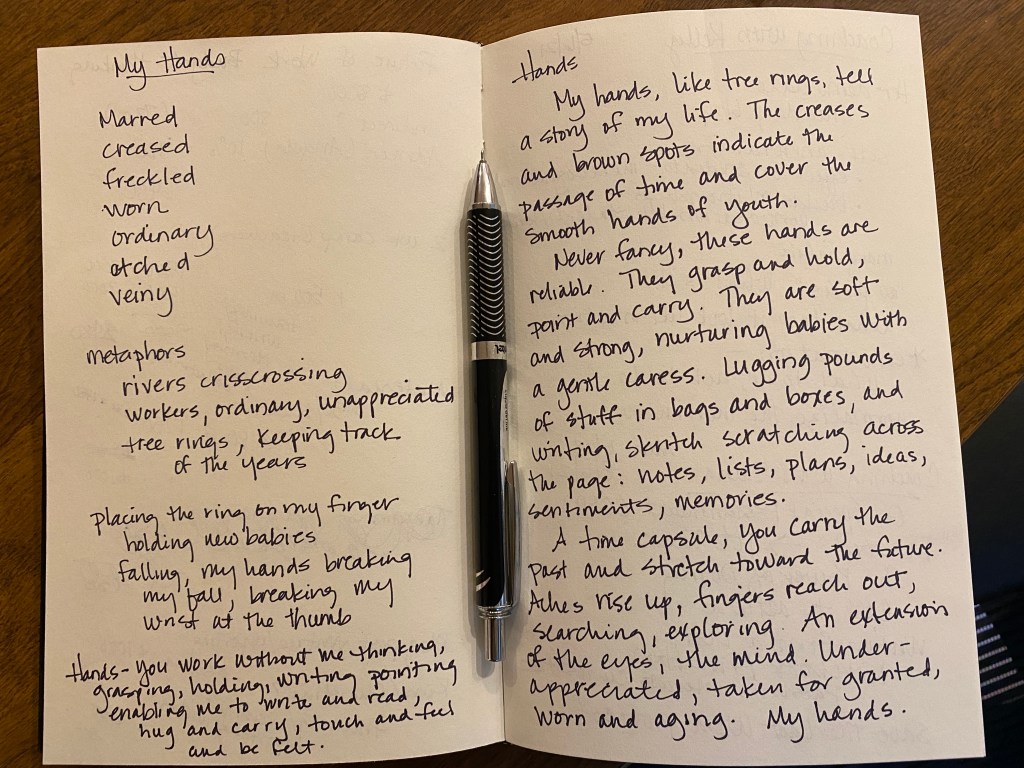 My Hands
Marred
creased
freckled
worn
ordinary
etched
veiny
metaphors
rivers crisscrossing
workers, ordinary, unappreciated
tree rings, keeping track
of the years
placing the ring on my finger
holding new babies
falling, my hands breaking
my fall, breaking my
wrist at the thumb
Hands - you work without me thinking,
grasping, holding, writing pointing
enabling me to write and read,
hug and carry, touch and feel
and be felt.
Hands
My hands, like tree rings, tell
a story of my life. The creases
and brown spots indicate the
passage of time and cover the
smooth hands of youth.
Never fancy, these hands are
reliable. They grasp and hold,
point and carry. They are soft
and strong, nurturing babies with
a gentle caress. Lugging pounds
of stuff in bags and boxes, and
writing, skritch scratching across
the page: notes, lists, plans, ideas,
sentiments, memories.
A time capsule, you carry the
past and stretch toward the future.
Aches rise up, fingers reach out,
searching, exploring. An extension
of the eyes, the mind. Under-
appreciated, taken for granted,
worn and aging. My hands.